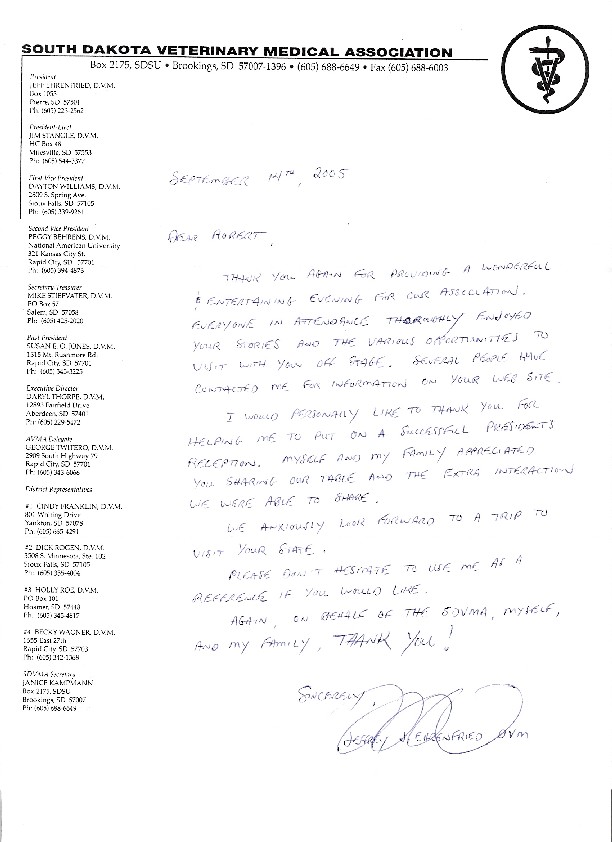 SOUTH DAKOTA VETERINARY MEDICAL ASSOCIATION
Box 2175, SDSU • Brookings, SD 57007-1396 • (605) 688-6649 • Fax (605) 688-6003
President
JEFF EHRENFRIED, D.V.M.
Box 1053
Pierre, SD 57501
President-Elect
JIM STANGLE, D.V.M.
HC Box 48
Milesville, SD 57553
First Vice President
DAYTON WILLIAMS, D.V.M.
2509 S. Spring Ave.
Sioux Falls, SD 57105
Ph: (605) 339-9261
Second Vice President
PEGGY BEHRENS, D.V.M.
National American University
321 Kansas City St.
Rapid City, SD 57701
Ph: (605) 394-4873
Secretary Treasurer
MIKE STIEFVATER, D.V.M.
PO Box 57
Salem, SD 57058
Ph: (605) 425-2020
Past President
SUSAN E. O. JONES, D.V.M.
1315 Mt. Rushmore Rd.
Rapid City, SD 57701
Ph: (605) 343-3225
Executive Director
DARYL THORPE, D.V.M.
12893 Fairfield Drive
Aberdeen, SD 57401
Ph: (605) 229-5472
AVMA Delegate
GEORGE TWITERO, D.V.M.
2909 South Highway 79
Rapid City, SD 57701
Ph: (605) 343-6066
District Representatives
#1 CINDY FRANKLIN, D.V.M.
801 Whiting Drive
Yankton, SD 57078
Ph: (605) 665-4291
#2 DICK ROGEN, D.V.M.
3508 S. Minnesota, Ste. 102
Sioux Falls, SD 57105
Ph: (605) 338-4004
#3 HOLLY ROE, D.V.M.
PO Box 101
Hosmer, SD 57448
#4 BECKY WAGNER, D.V.M.
1655 East 27th
Rapid City, SD 57703
Ph: (605) 342-1368
SDVMA Secretary
JANICE KAMPMANN
Box 2175, SDSU
Brookings, SD 57007
Ph: (605) 688-6649
SEPTEMBER 14TH, 2005
DEAR ROBERT,
THANK YOU AGAIN FOR PROVIDING A WONDERFULL
& ENTERTAINING EVENING FOR OUR ASSOCIATION.
EVERYONE IN ATTENDANCE THOROUGHLY ENJOYED
YOUR STORIES AND THE VARIOUS OPORTUNITIES TO
VISIT WITH YOU OFF STAGE. SEVERAL PEOPLE HAVE
CONTACTED ME FOR INFORMATION ON YOUR WEB SITE.
I WOULD PERSONALLY LIKE TO THANK YOU FOR
HELPING ME TO PUT ON A SUCCESSFULL PRESIDENTS
RECEPTION. MYSELF AND MY FAMILY APPRECIATED
YOU SHARING OUR TABLE AND THE EXTRA INTERACTION
WE WERE ABLE TO SHARE.
WE ANXIOUSLY LOOK FORWARD TO A TRIP TO
VISIT YOUR STATE.
PLEASE DON'T HESITATE TO USE ME AS A
REFERENCE IF YOU WOULD LIKE.
AGAIN, ON BEHALF OF THE SDVMA, MYSELF,
AND MY FAMILY, THANK YOU!
SINCERELY,
JEFFREY EHRENFRIED DVM